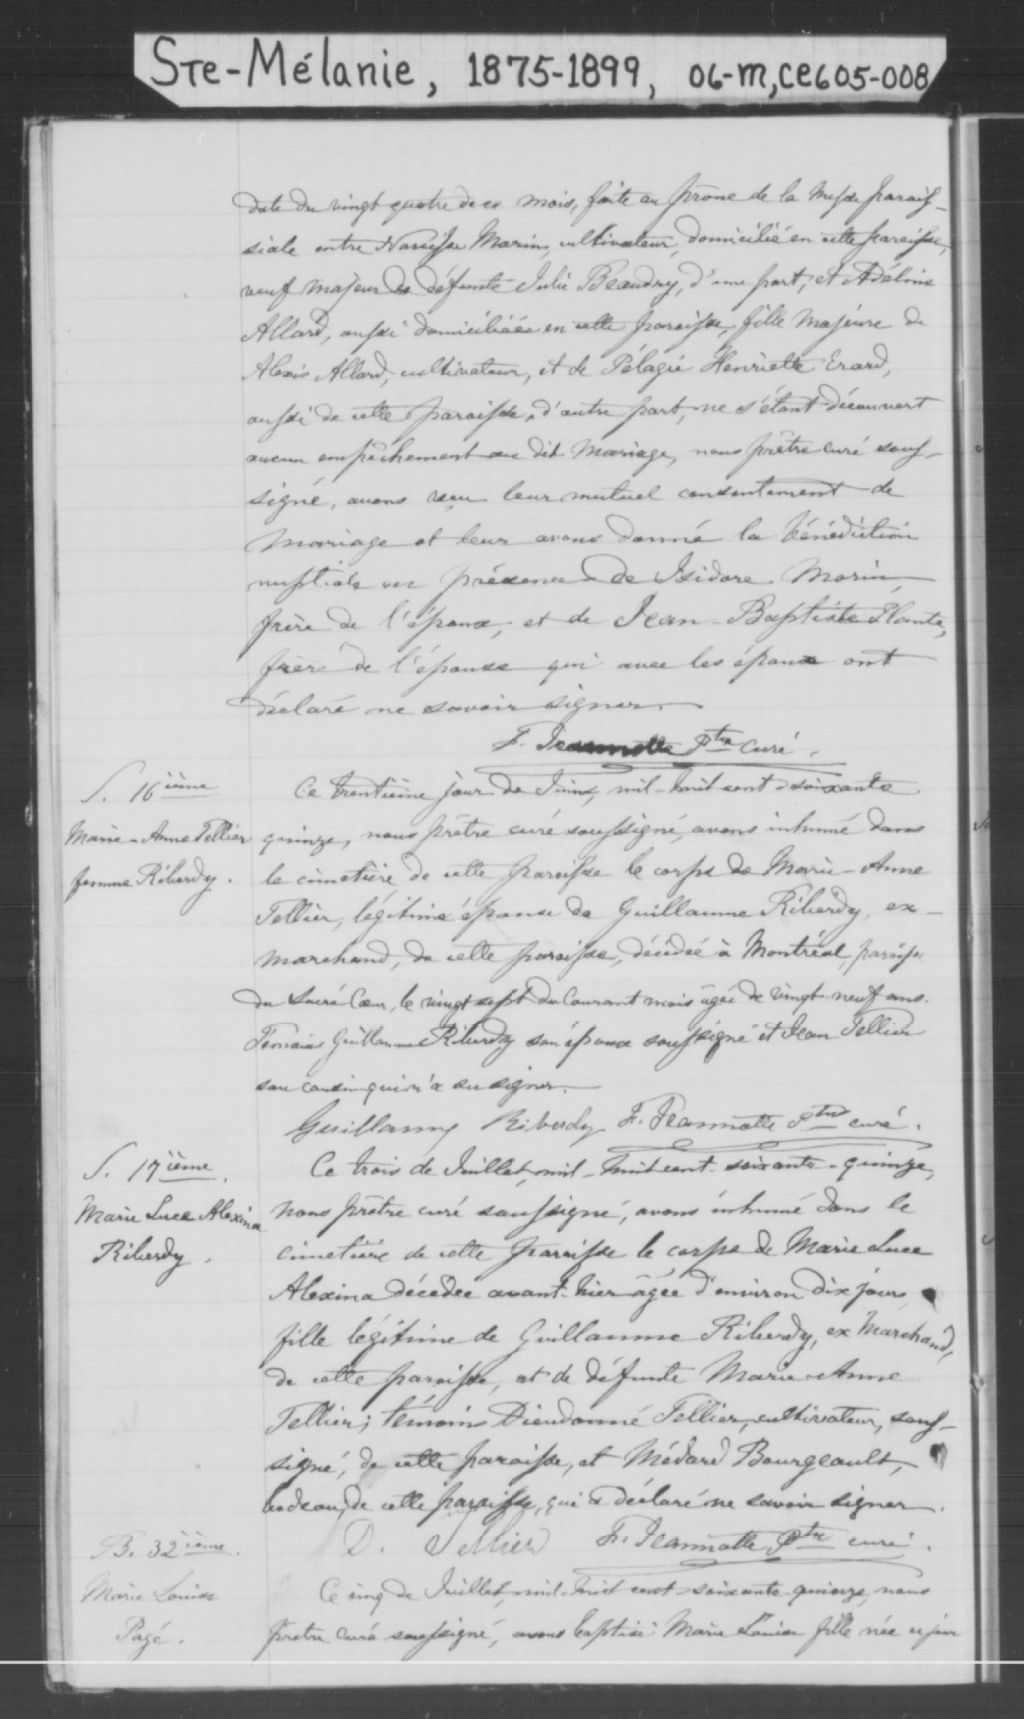 Ste-Mélanie, 1875-1899, 06-M,CE605-008
date du vingt quatre de ce mois, faite au prône de la Messe parois-
siale entre Narcisse Marin, cultivateur, domicilié en cette paroisse,
veuf majeur de défunte Julie Beaudry, d'une part, et Adéline
Allard, aussi domiciliée en cette paroisse, fille Majeure de
Alexis Allard, cultivateur, et de Pélagie Henriette Erard,
aussi de cette paroisse, d'autre part, ne s'étant découvert
aucun empêchement au dit Mariage, nous prêtre curé sous-
signé, avons reçu leur mutuel consentement de
Mariage et leur avons donné la bénédiction
nuptiale en présence de Isidore Morin,
frère de l'époux, et de Jean-Baptiste Plante,
frère de l'épouse qui avec les époux ont
déclaré ne savoir signer.
F. Jeannotte Ptre curé.
S. 16ième
Marie-Anne Tellier
femme Riberdy.
Ce trentième jour de Juin, mil-huit cent-soixante
quinze, nous prêtre curé soussigné, avons inhumé dans
le cimetière de cette paroisse le corps de Marie-Anne
Tellier, légitime épouse de Guillaume Riberdy, ex-
marchand, de cette paroisse, décédée à Montréal, paroisse
du Sacré Cœur, le vingt sept du Courant mois âgée de vingt-neuf ans.
Témoins Guillaume Riberdy son époux soussigné et Jean Tellier
son cousin qui n'a su signer.
Guillaume Riberdy F. Jeannotte Ptre curé.
S. 17ième.
Marie Luce Alexina
Riberdy.
Ce trois de Juillet, mil-huit cent-soixante-quinze,
Nous prêtre curé soussigné, avons inhumé dans le
cimetière de cette paroisse le corps de Marie Luce
Alexina décédée avant-hier âgée d'environ dix jours,
fille légitime de Guillaume Riberdy, ex Marchand,
de cette paroisse, et de défunte Marie-Anne
Tellier; témoins Dieudonné Tellier, cultivateur, sous-
signé, de cette paroisse, et Médard Bourgeault,
bedeau, de cette paroisse, qui a déclaré ne savoir signer.
D. Tellier F. Jeannotte Ptre curé.
B. 32ième.
Marie Louise
Pagé.
Ce cinq de Juillet, mil-huit cent-soixante-quinze, nous
prêtre curé soussigné, avons baptisé Marie Louise fille née ce jour